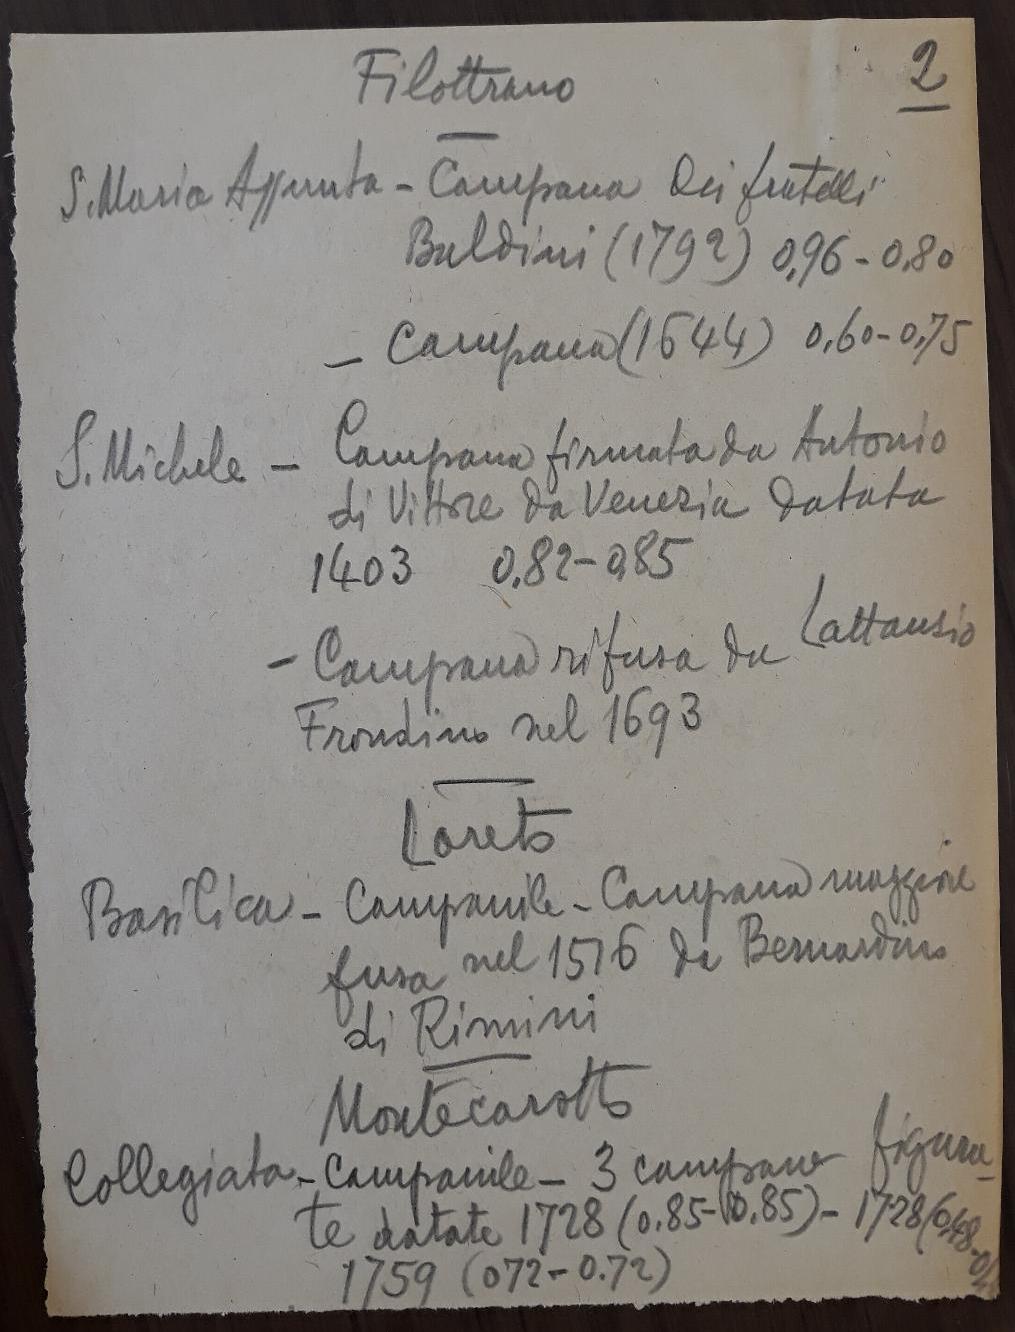 2
Filottrano
S. Maria Assunta - Campana dei fratelli
Baldini (1792) 0,96 - 0,80
- Campana (1644) 0,60 - 0,75
S. Michele - Campana firmata da Antonio
di Vittore da Venezia datata
1403 0,82 - 0,85
- Campana rifusa da Lattansio
Frondino nel 1693
Loreto
Basilica - Campanile - Campana maggiore
fusa nel 1516 da Bernardino
di Rimini
Montecarotto
Collegiata - Campanile - 3 campane figura-
te datate 1728 (0.85 - 0.85) - 1728 (0,48 -
1759 (072 - 0.72)